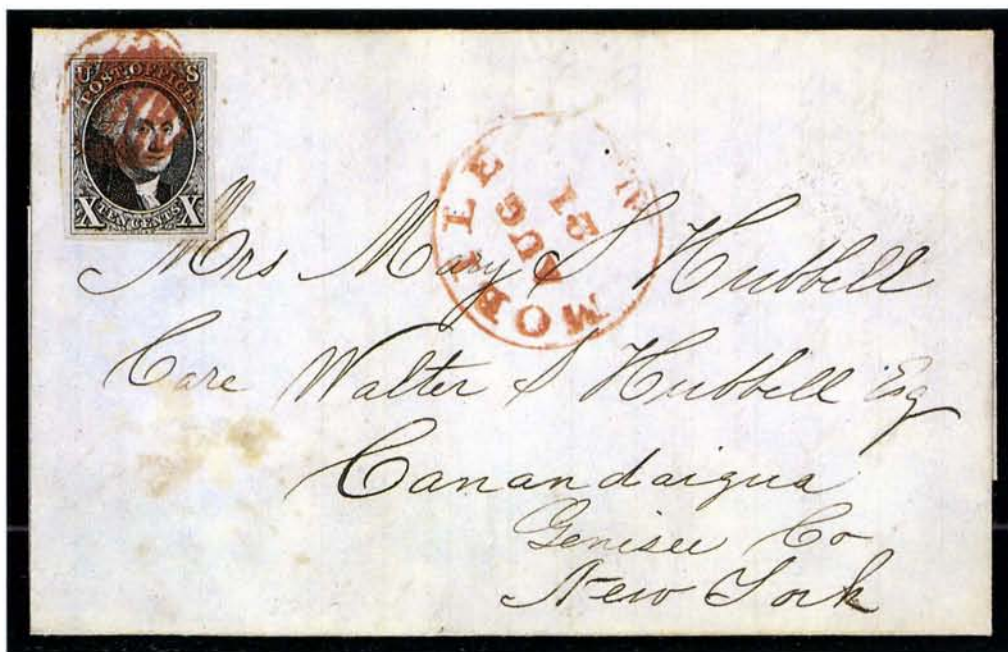 U S
POST OFFICE
X TEN CENTS X
MOBILE
AUG
21
Mrs Mary S Hubbell
Care Walter S Hubbell Esq
Canandaigua
Genisee Co
New York